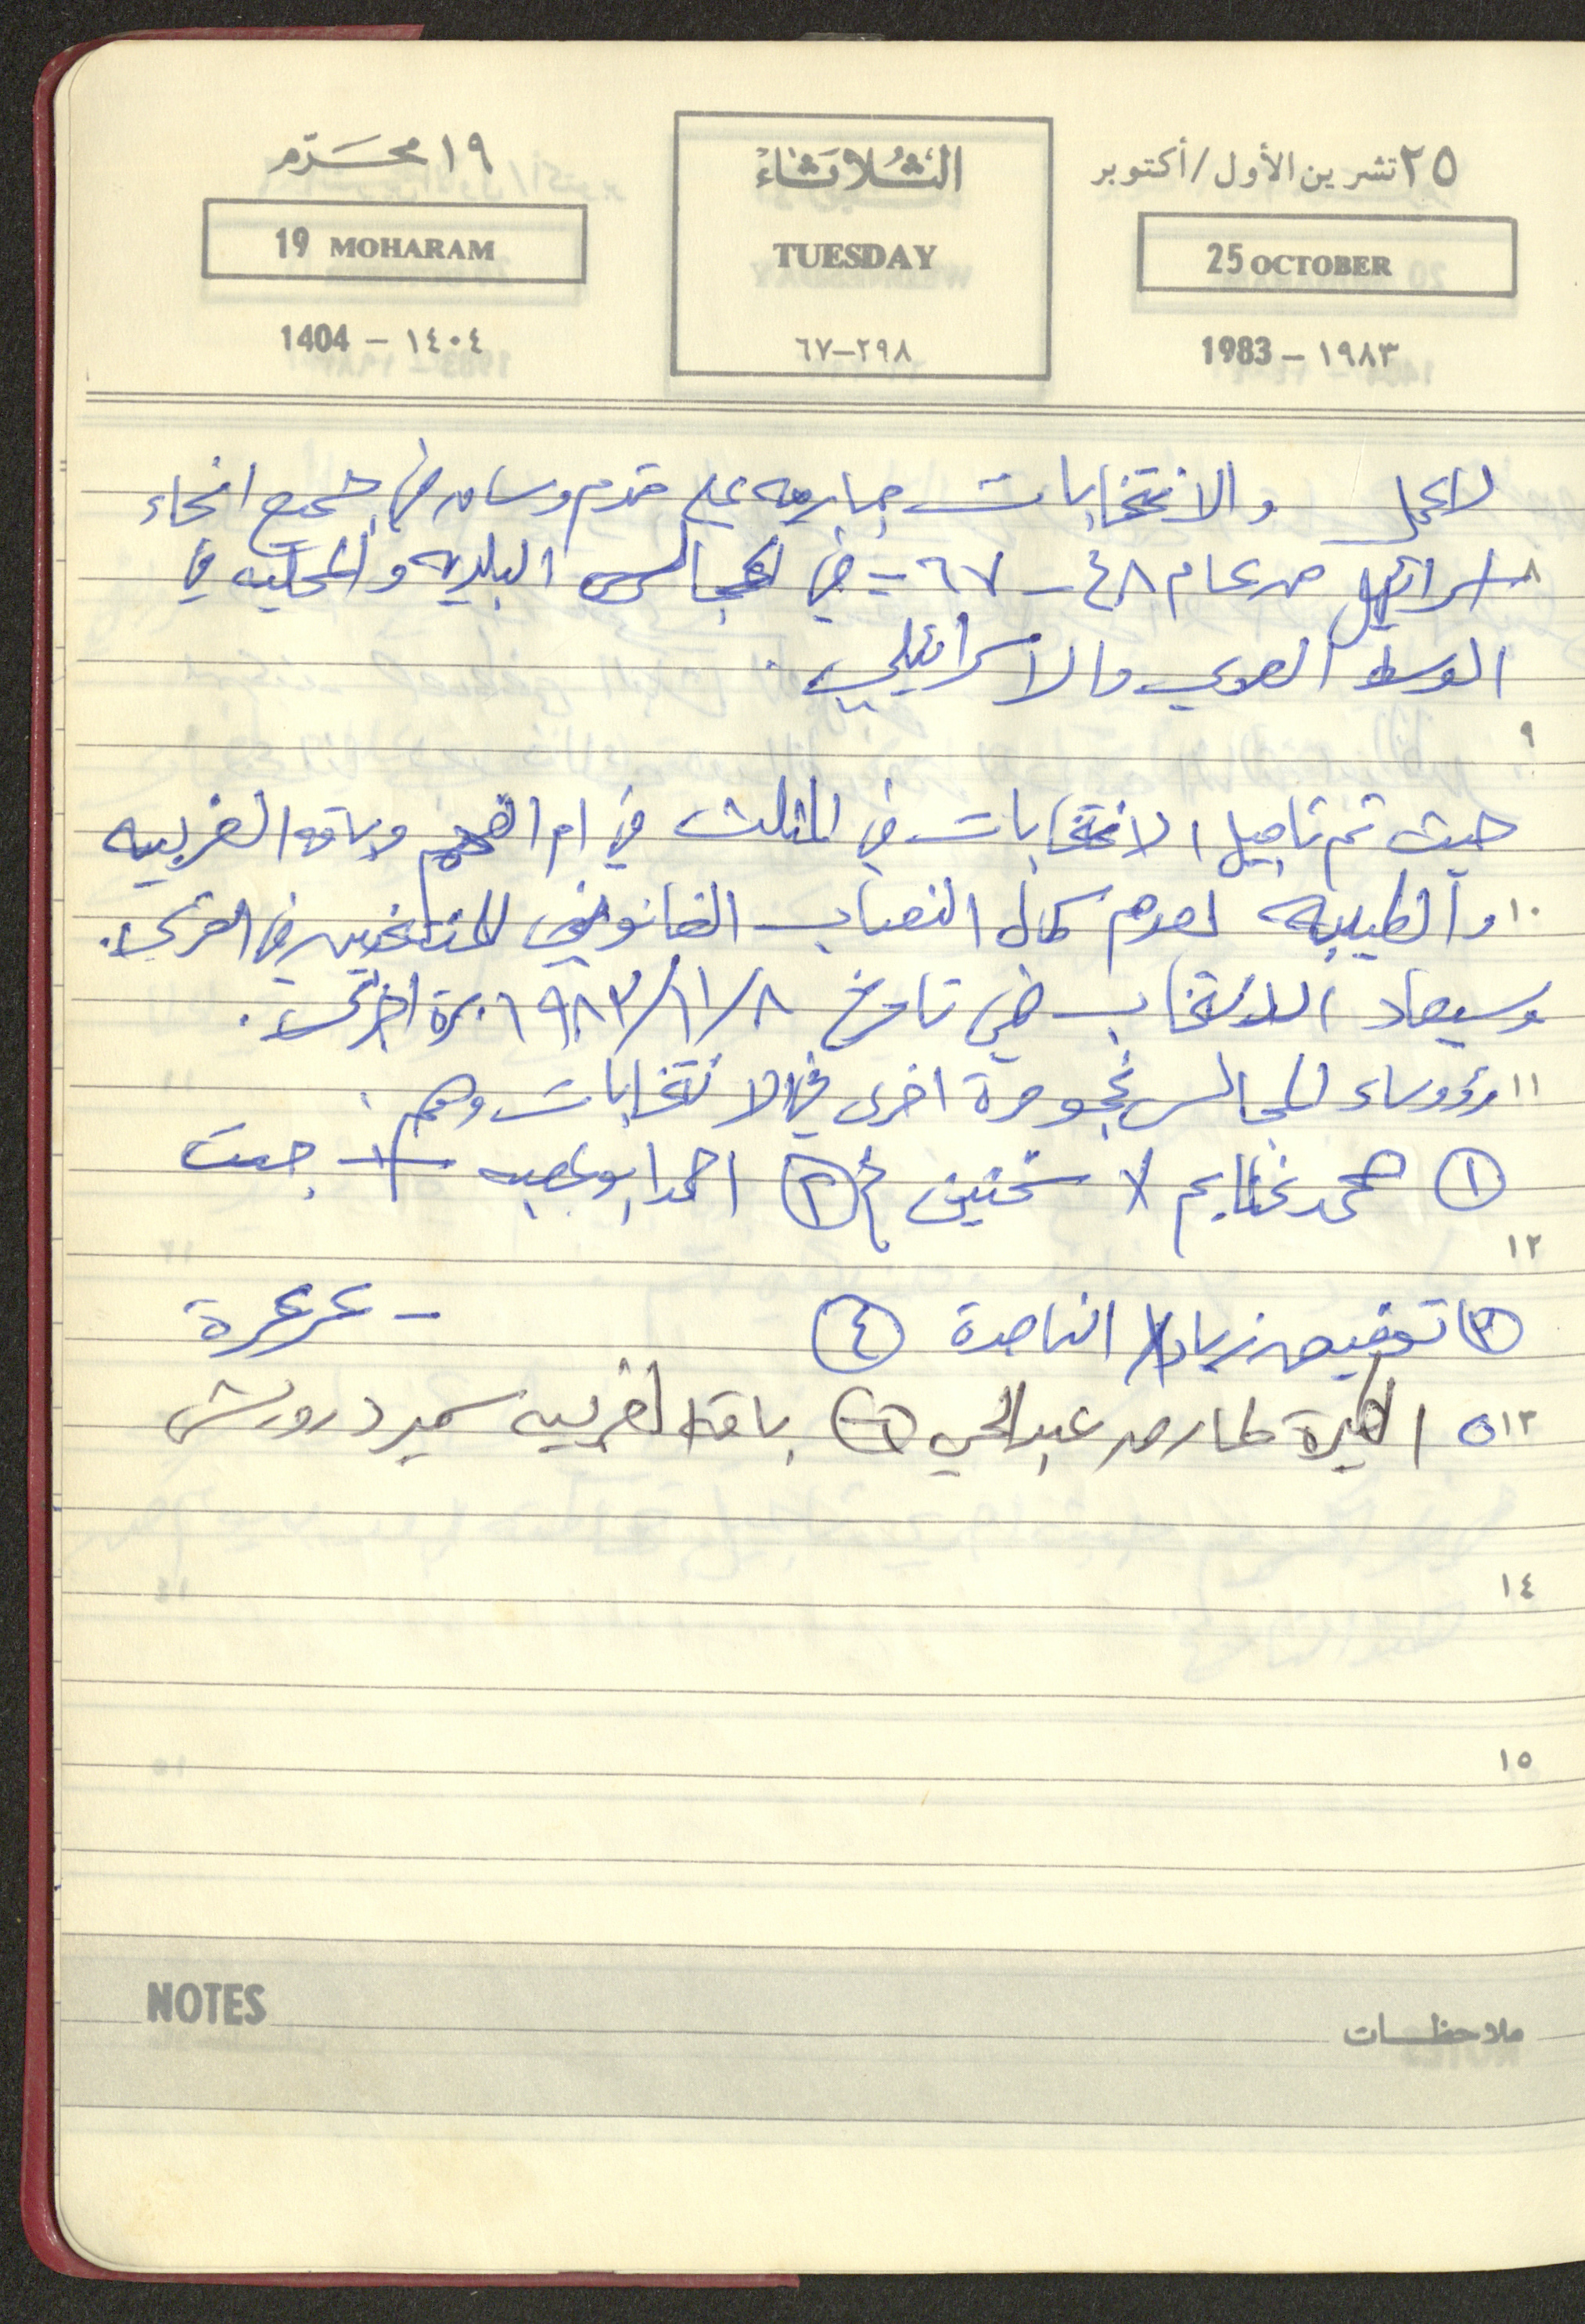 ٢٥ تشرين الأول/أكتوبر
25 OCTOBER
1983 - ١٩٨٣
الثلاثاء
TUESDAY
٦٧-٢٩٨
١٩ محرّم
19 MOHARAM
1404 - ١٤٠٤
للعمل والانتخابات جاريه على قدم وساق في جميع انحاء
٨ اسرائيل من عام ٤٨ - ٦٧ = في المجالس البلديه والمحليه في
الوسط العربي والاسرائيلي .
٩
حيث تم تاجيل الانتخابات في المثلث في ام الفحم وباقه الغربيه
١٠ والطيبه لعدم كمال النصاب القانوني للمنتخبين في القرى .
وسيعاد الانتخاب في تاريخ ١٩٨٣/١١/٨ مرة اخرى .
١١ ورؤوساء المجالس نجحو مرة اخرى في الانتخابات وهم .
١ محمد غنايم / سخنين ٢ احمد ابو عصبه جت
١٢
٣ توفيق زياد / الناصرة ٤ - عرعرة
١٣ ٥ الطيرة طارق عبد الحي ٦ باقه الغربيه سمير درويش
١٤
١٥
NOTES
ملاحظات